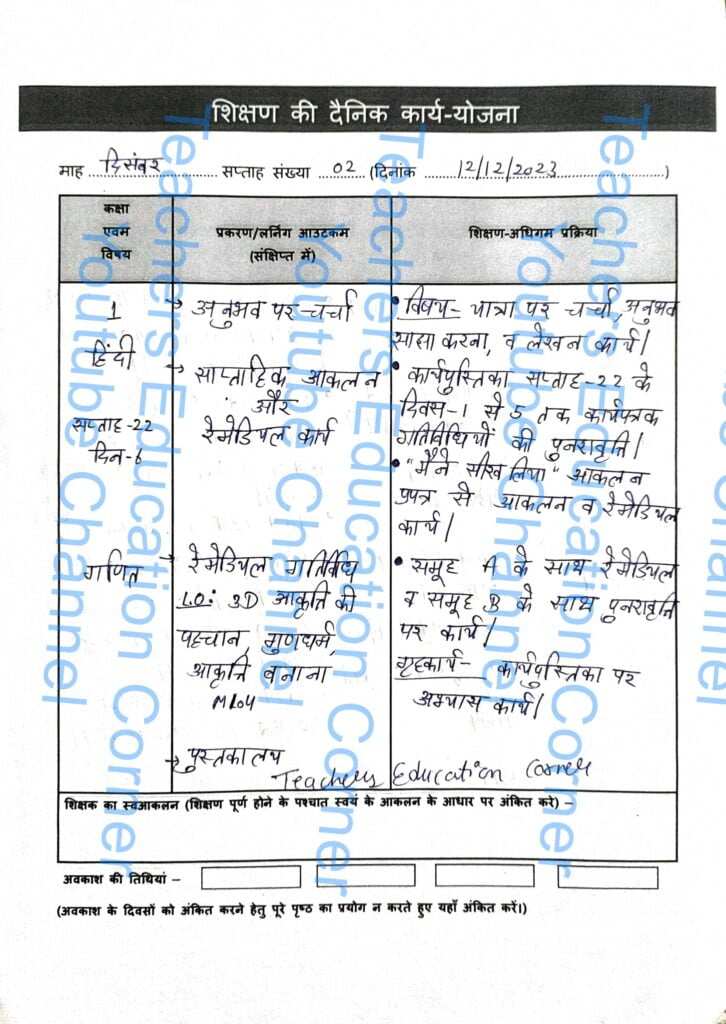 शिक्षण की दैनिक कार्य-योजना
माह दिसंबर सप्ताह संख्या 02 (दिनांक 12/12/2023)
कक्षा
एवम
विषय
प्रकरण/लर्निंग आउटकम
(संक्षिप्त में)
शिक्षण-अधिगम प्रक्रिया
1
हिंदी
सप्ताह-22
दिन-6
→ अनुभव पर चर्चा
→ साप्ताहिक आकलन
और
रेमेडियल कार्य
• विषय- यात्रा पर चर्चा, अनुभव
साझा करना, व लेखन कार्य।
• कार्यपुस्तिका सप्ताह-22 के
दिवस-1 से 5 तक कार्यपत्रक
गतिविधियों की पुनरावृत्ति।
• "मैंने सीख लिया" आकलन
प्रपत्र से आकलन व रेमेडियल
कार्य।
गणित
→ रेमेडियल गतिविधि
L.O: 3D आकृति की
पहचान, गुणधर्म,
आकृति बनाना
M104
→ पुस्तकालय
• समूह A के साथ रेमेडियल
व समूह B के साथ पुनरावृत्ति
पर कार्य।
गृहकार्य- कार्यपुस्तिका पर
अभ्यास कार्य।
Teachers Education Corner
शिक्षक का स्वआकलन (शिक्षण पूर्ण होने के पश्चात स्वयं के आकलन के आधार पर अंकित करे) –
अवकाश की तिथियां –
(अवकाश के दिवसों को अंकित करने हेतु पूरे पृष्ठ का प्रयोग न करते हुए यहाँ अंकित करें।)
Teachers Education Corner
Youtube Channel
Teachers Education Corner
Youtube Channel
Teachers Education Corner
Youtube Channel